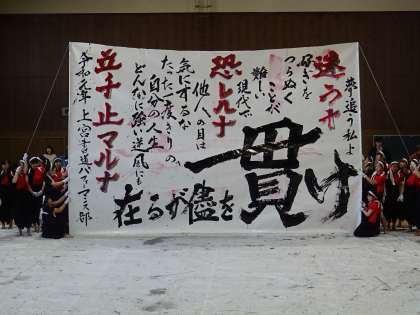 夢を追う私よ
迷うナ
好きを
つらぬく
ことが
難しい
現代で
恐レルナ
他人の目は
気にするな
たった一度きりの
自分の人生
どんなに強い逆風に
立チ止マルナ
在るが儘を
貫け
令和元年 上宮書道パフォーマンス部